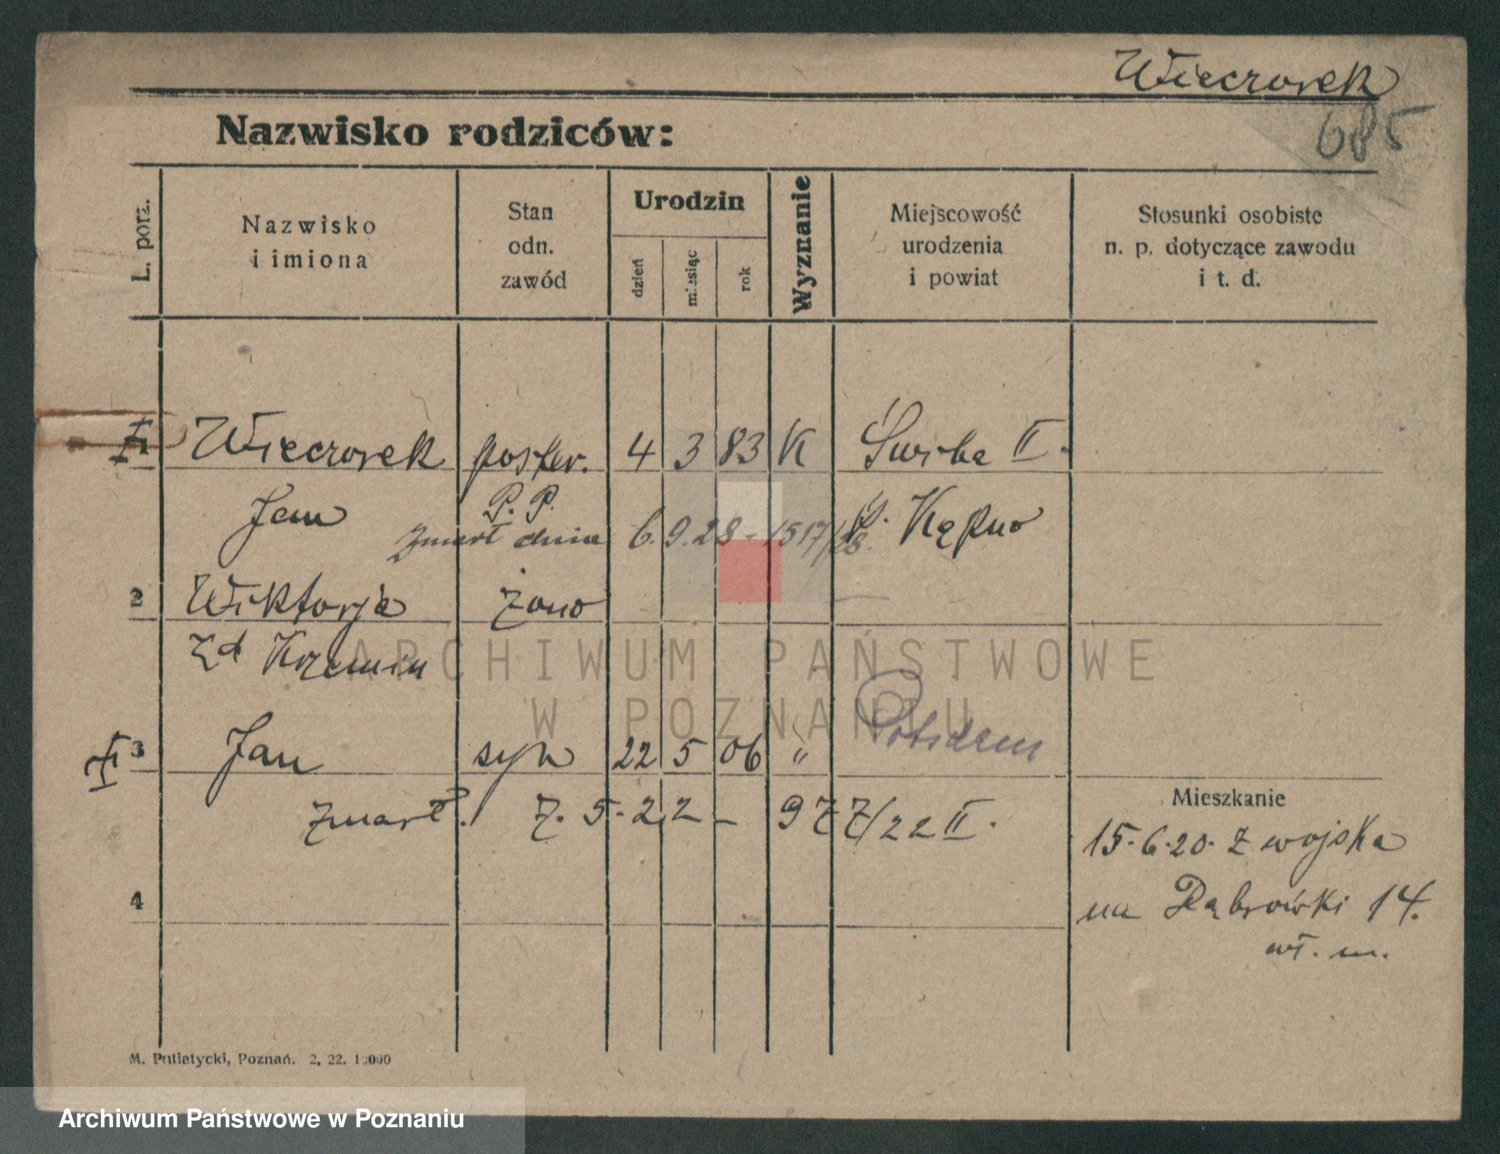 Wieczorek
685
Nazwisko rodziców:
L. porz.
Nazwisko
i imiona
Stan
odn.
zawód
Urodzin
dzień
miesiąc
rok
Wyznanie
Miejscowość
urodzenia
i powiat
Stosunki osobiste
n. p. dotyczące zawodu
i t. d.
1 Wieczorek poster. 4 3 83 K Świba II.
Jan P. P. p. Kępno
zmarł dnia 6.9.28 - 1517/28.
2 Wiktorja żona
zd Krzemin
3 Jan syn 22 5 06 " Potsdam
zmarł 7.5.22 - 977/22 II.
4
Mieszkanie
15.6.20. z wojska
na Dąbrówki 14.
wł. m.
M. Putiatycki, Poznań. 2. 22. 10000
ARCHIWUM PAŃSTWOWE
W POZNANIU
Archiwum Państwowe w Poznaniu